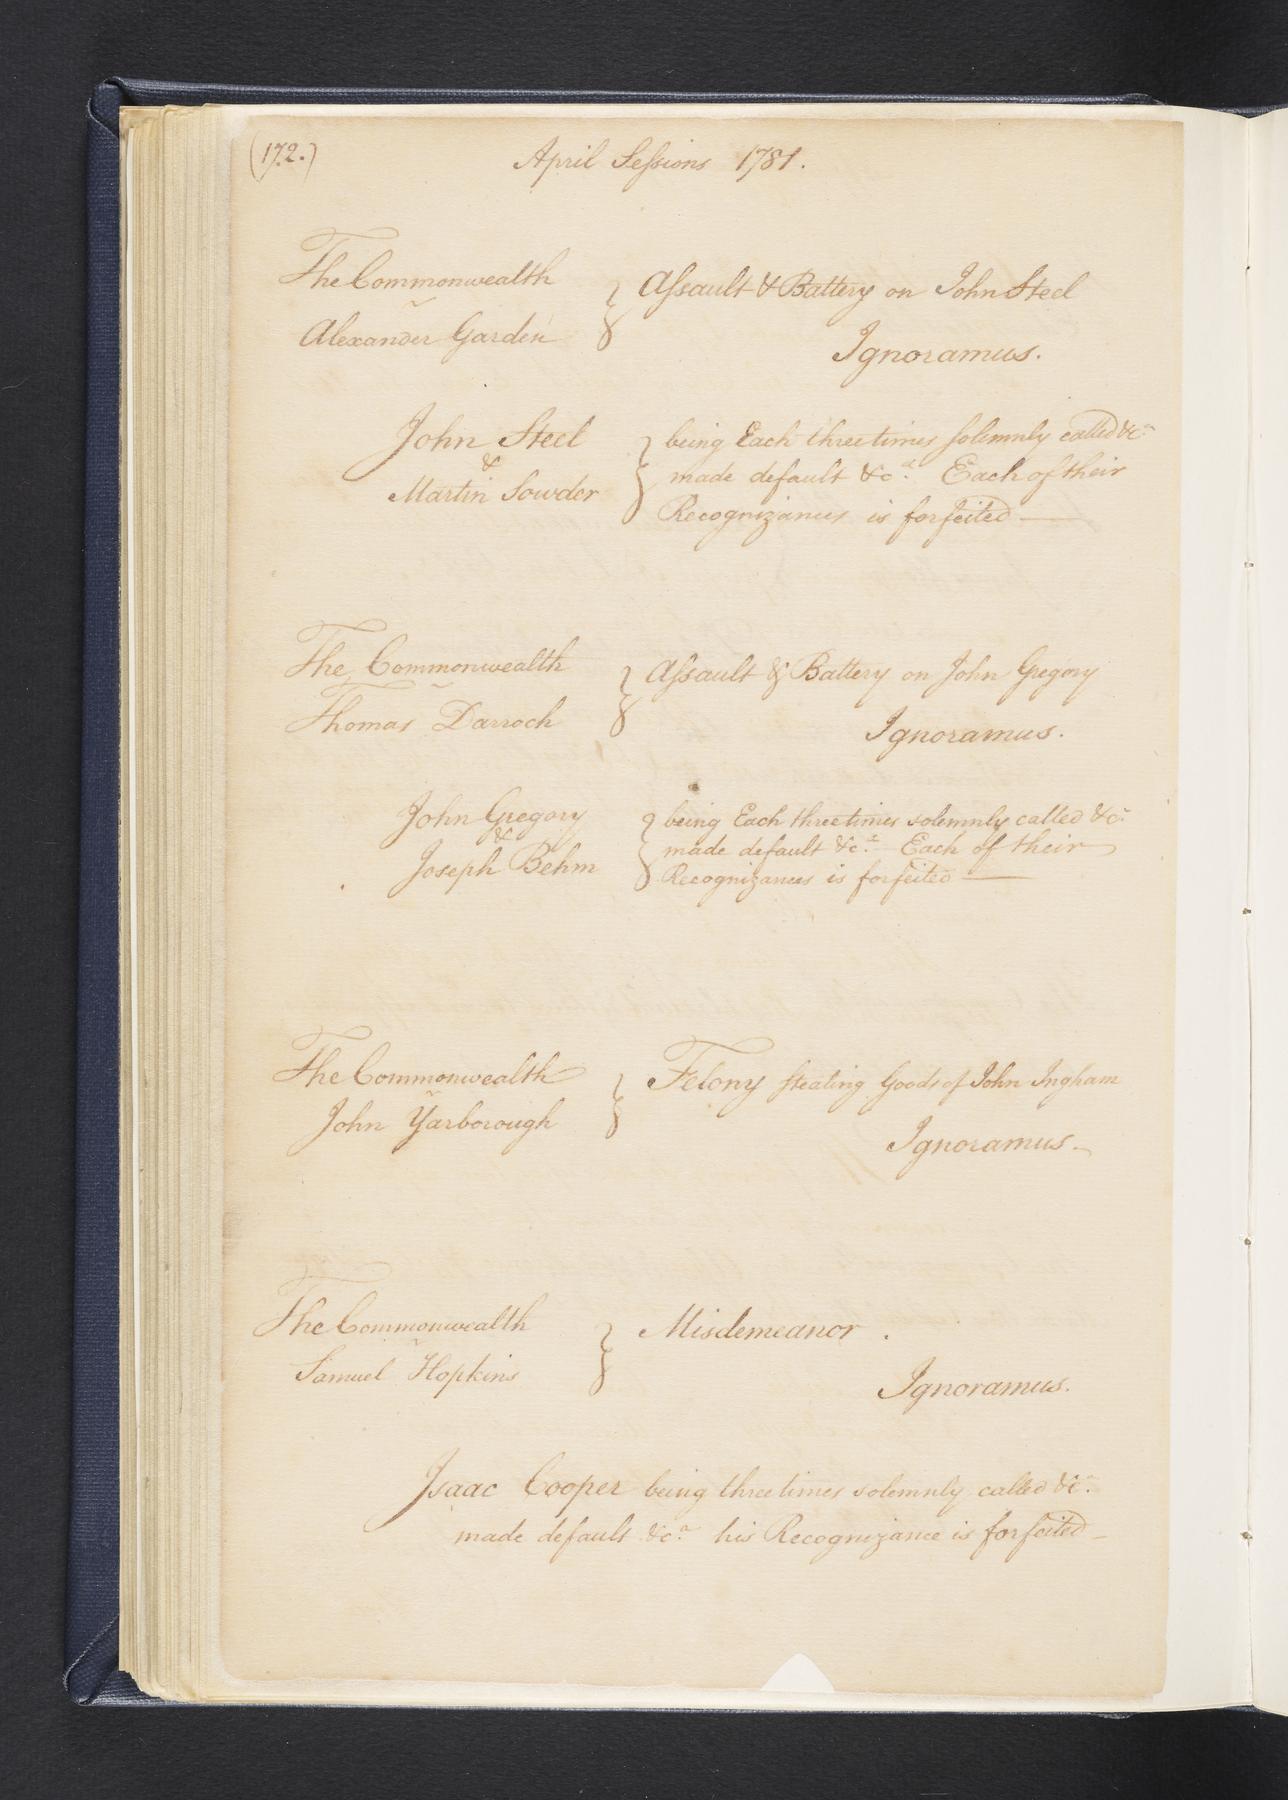 (172.)
April Sessions 1781.
The Commonwealth
~
Alexander Garden
} Assault & Battery on John Steel
Ignoramus.
John Steel
&
Martin Sowder
} being Each three times solemnly called &c.a
made default &c.a Each of their
Recognizances is forfeited —
The Commonwealth
~
Thomas Darroch
} Assault & Battery on John Gregory
Ignoramus.
John Gregory
&
Joseph Behm
} being Each three times solemnly called &c.a
made default &c.a Each of their
Recognizances is forfeited —
The Commonwealth
~
John Yarborough
} Felony stealing Goods of John Ingham
Ignoramus –
The Commonwealth
~
Samuel Hopkins
} Misdemeanor .
Ignoramus.
Isaac Cooper being three times solemnly called &c.a
made default &c.a his Recognizance is forfeited –